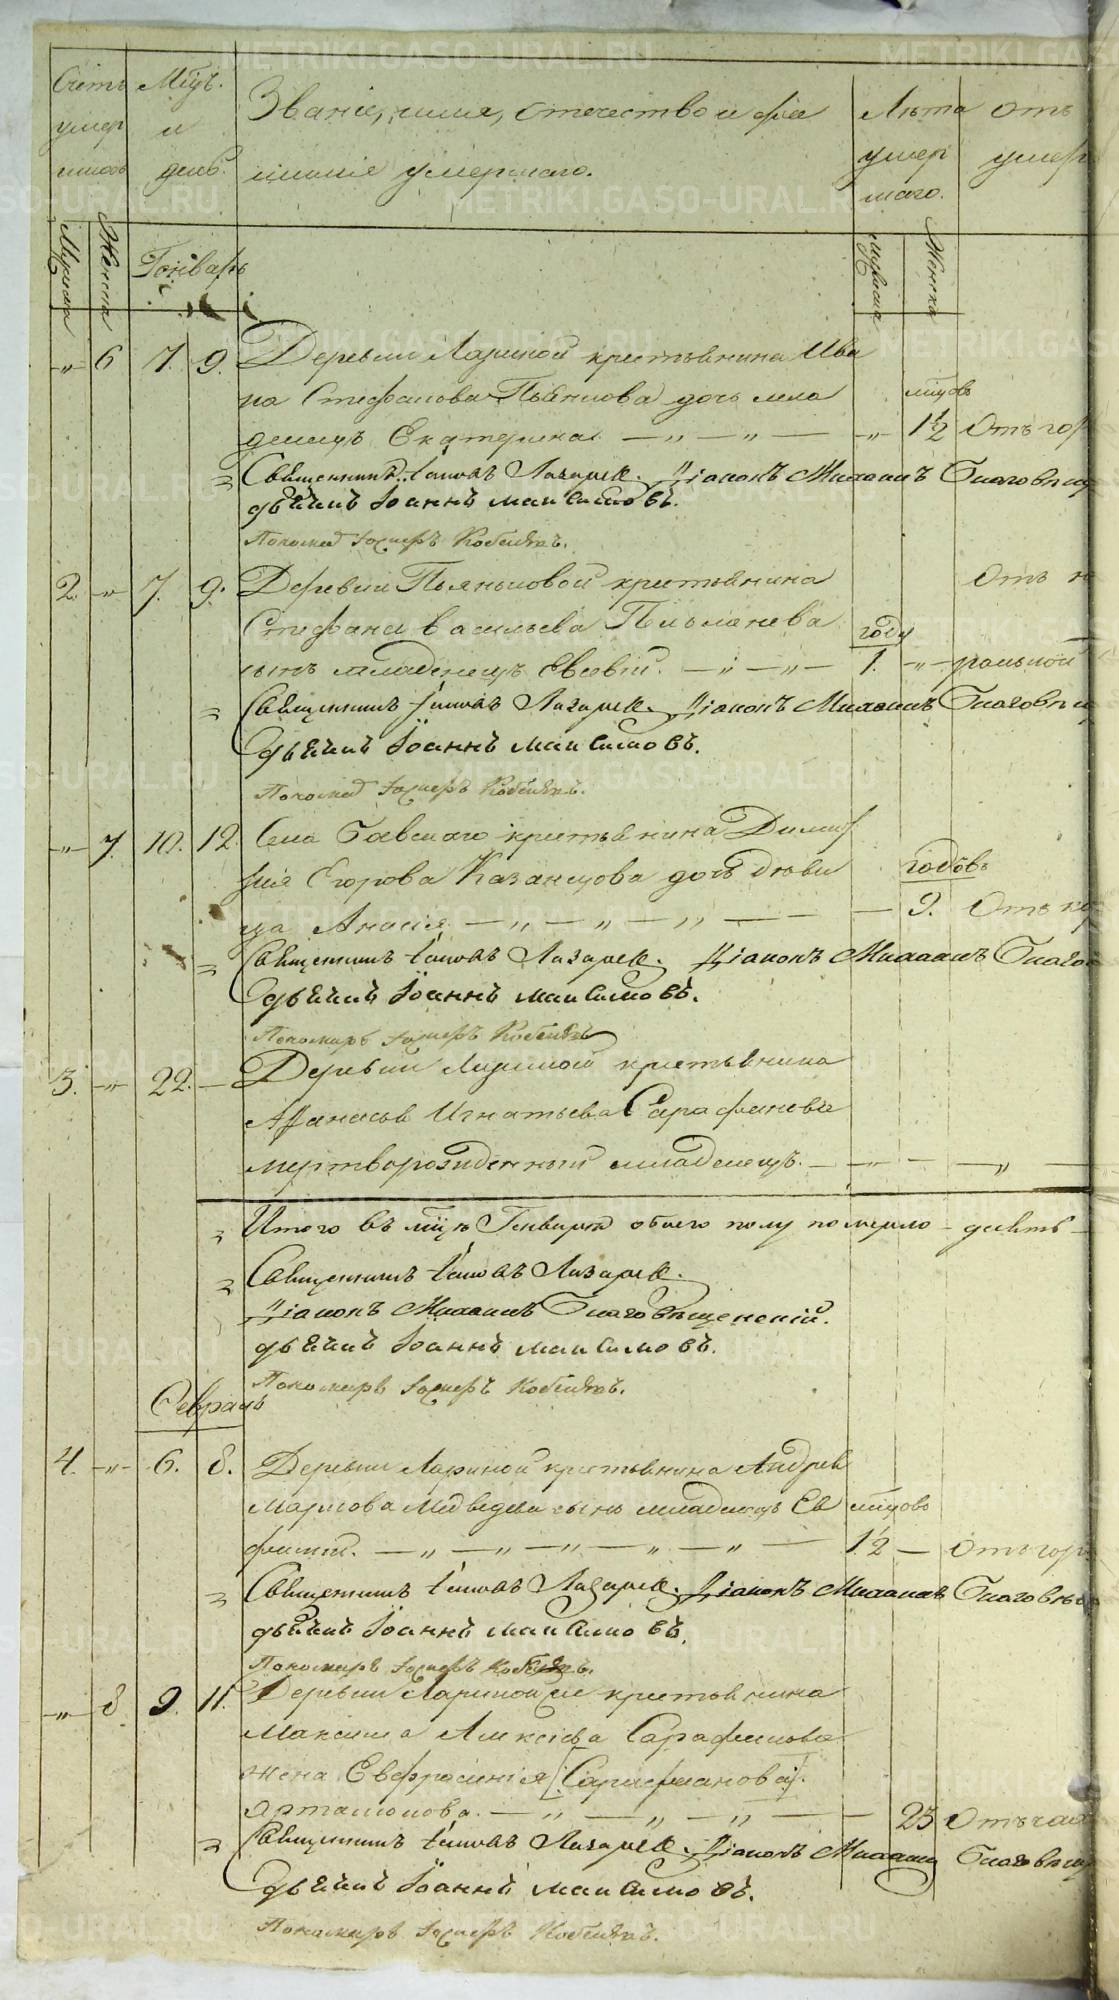 Счетъ умершихъ
Мцъ. и день.
Званіе, имя, отечество и фа
миліе умершаго.
Лѣта умер
шаго.
Отъ
умер
Мужеска
Женска
Генварь
Мужеска
Женска
-"- 6 7. 9. Деревни Лариной крестьянина Ива
на Стефанова Пьянкова дочь мла мцовъ
денецъ Екатерина — " — " — - " - 1½ Отъ гор
Священникъ Іаковъ Лазаревъ. Діаконъ Михаилъ Благовѣщ
дьячикъ Іоаннъ Максимовъ.
Пономарь
2. -"- 7. 9. Деревни Пьяньковой крестьянина Отъ
Стефана Васильева Пьянкова году
сынъ младенецъ Евсевій. — " — " — 1. -"-
Священникъ Іаковъ Лазаревъ. Діаконъ Михаилъ Благовѣщ
Дьячикъ Іоаннъ Максимовъ.
Пономарь
-"- 7. 10. 12. Села крестьянина Димит
рія Егорова Казанцова дочь дѣви годовъ
ца Анисія — " — " — " — — 9. Отъ
Священникъ Іаковъ Лазаревъ. Діаконъ Михаилъ Благов
Дьячикъ Іоаннъ Максимовъ.
Пономарь
3. -"- 22. — Деревни Лариной крестьянина
Афанасья Игнатьева Сарафанова
мертворожденный младенецъ. — " — "
Итого въ мцѣ Генварѣ обоего полу померло - десять -
Священникъ Іаковъ Лазаревъ.
Діаконъ Михаилъ Благовѣщенскій.
дьячикъ Іоаннъ Максимовъ.
Пономарь
Февраль
4. -"- 6. 8. Деревни Лариной крестьянина Андрея
Маркова Медведева сынъ младенецъ Ев мцовъ
фимій. — " — " — " — " — " — 1½ — Отъ гор
Священникъ Іаковъ Лазаревъ. Діаконъ Михаилъ Благовѣщ
дьячикъ Іоаннъ Максимовъ.
Пономарь
-"- 8 9. 11. Деревни Лариной же крестьянина
Максима Алексіева Сарафанова
жена Евфросинія [Сарафанова].
Артамонова. — " — " — " — — 23 Отъ
Священникъ Іаковъ Лазаревъ. Діаконъ Михаилъ Благовѣщ
Дьячикъ Іоаннъ Максимовъ.
Пономарь
METRIKI.GASO-URAL.RU